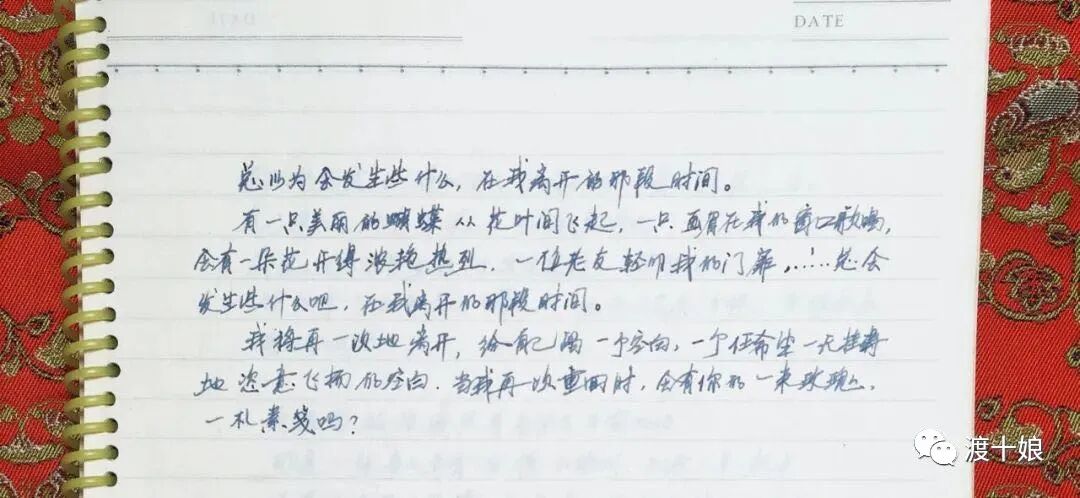 DATE
DATE
总以为会发生些什么，在我离开的那段时间。
有一只美丽的蝴蝶从花叶间飞起，一只画眉在我的窗口歌唱，
会有一朵花开得浓艳热烈，一位老友轻叩我的门扉，……总会
发生些什么吧，在我离开的那段时间。
我将再一次地离开，给自己留一个空白，一个任希望一无挂碍
地恣意飞扬的空白。当我再一次重回时，会有你的一束玫瑰，
一札素笺吗？
渡十娘